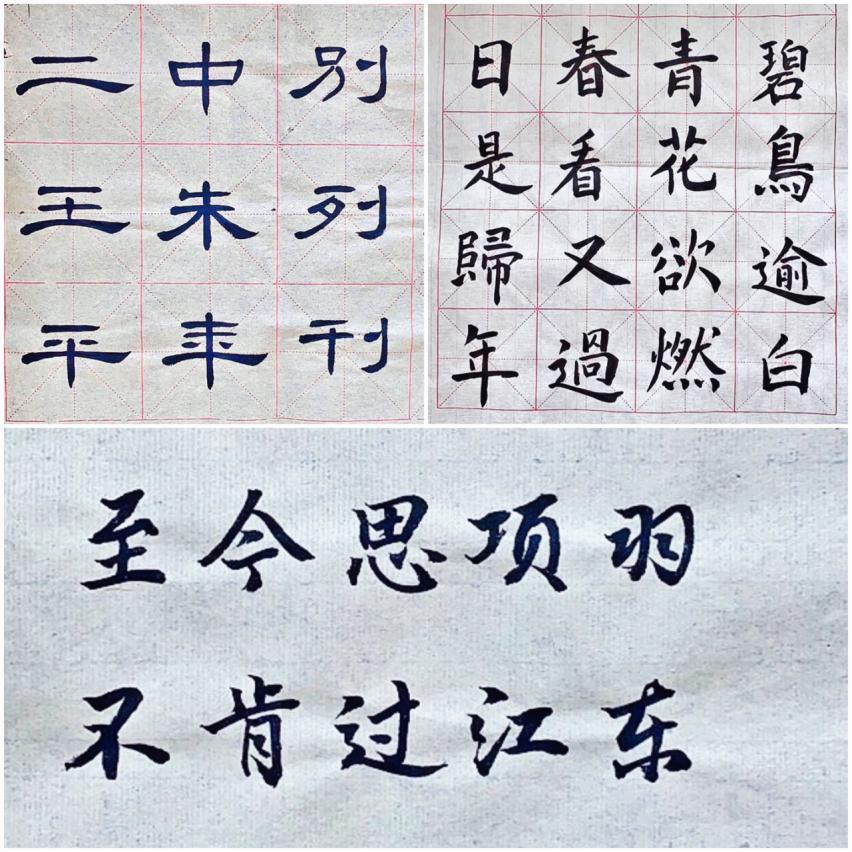 别列刊
中朱年
二王平
碧鳥逾白
青花欲燃
春看又過
日是歸年
至今思项羽
不肯过江东